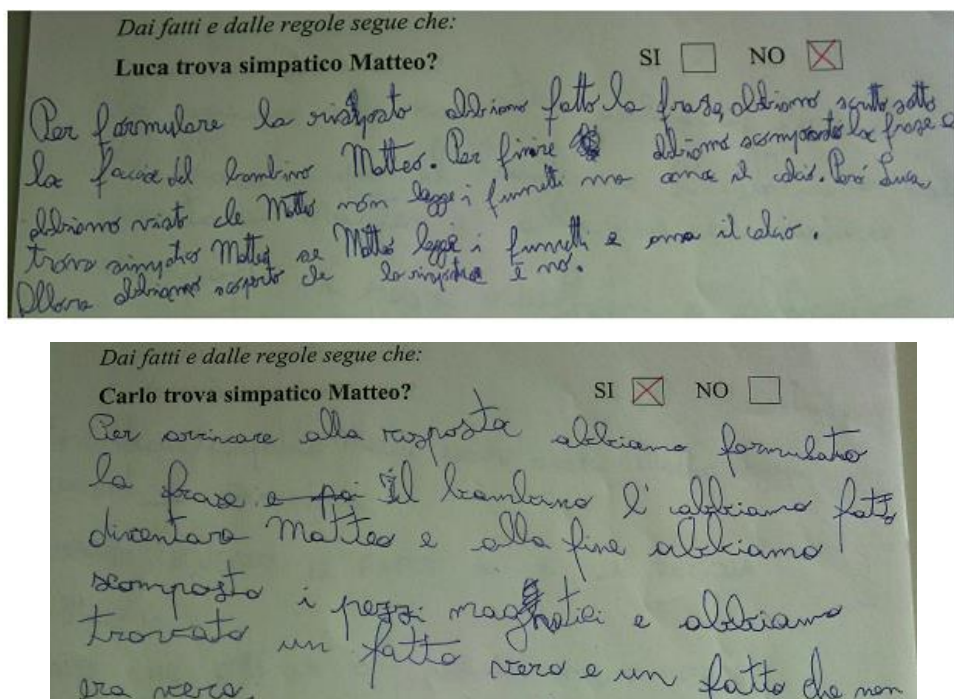 Dai fatti e dalle regole segue che:
Luca trova simpatico Matteo? SI NO
Per formulare la risposta abbiamo fatto la frase, abbiamo scritto sotto
la faccia del bambino Matteo. Per finire abbiamo scomposto la frase e
abbiamo visto che Matteo non legge i fumetti ma ama il calcio. Però Luca
trova simpatico Matteo se Matteo legge i fumetti e ama il calcio.
Allora abbiamo scoperto che la risposta è no.
Dai fatti e dalle regole segue che:
Carlo trova simpatico Matteo? SI NO
Per arrivare alla risposta abbiamo formulato
la frase e poi il bambino l'abbiamo fatto
diventare Matteo e alla fine abbiamo
scomposto i pezzi magnetici e abbiamo
trovato un fatto vero e un fatto che non
era vero.